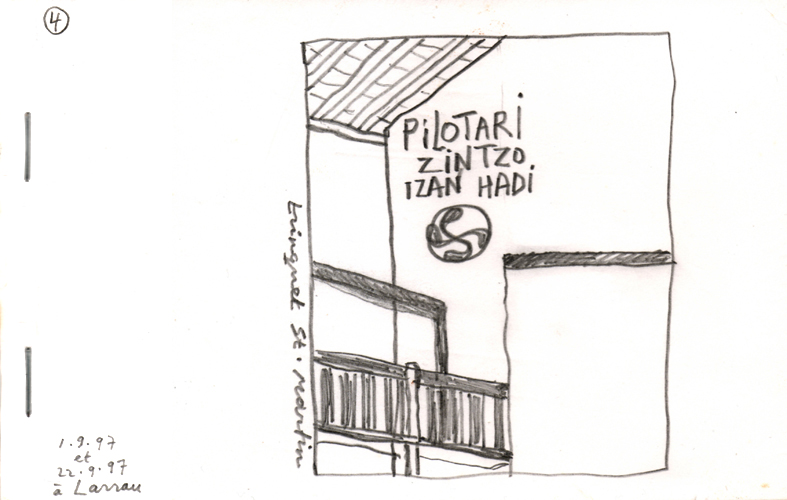 4
PiLOTARi
ZiNTZO
IZAN HADi
Trinquet St. Martin
1.9.97
et
22.9.97
à Larrau